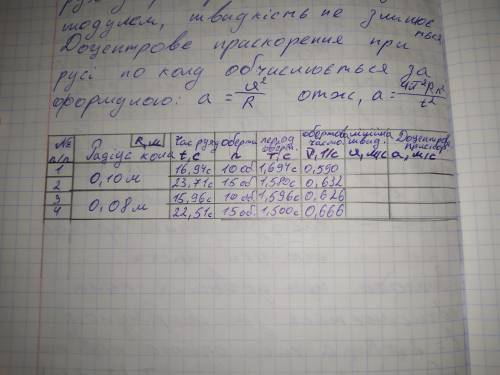 модулом, швидкість не змінює
ться.
Доцентрове прискорення при
русі по колу обчислюється за
формулою: a = υ²/R отж, a = 4π²Rn²/t²
№ п/п R, м Радіус кола Час руху t, с Оберти n період оберт. T, с обертова часто. ν, 1/с швид. υ, м/с Доцентров. прискор. a, м/с
1 0,10 м 16,94с 10 об 1,694с 0,590
2 23,71с 15 об 1,580с 0,632
3 0,08 м 15,96с 10 об. 1,596с 0,626
4 22,51с 15 об. 1,500с 0,666